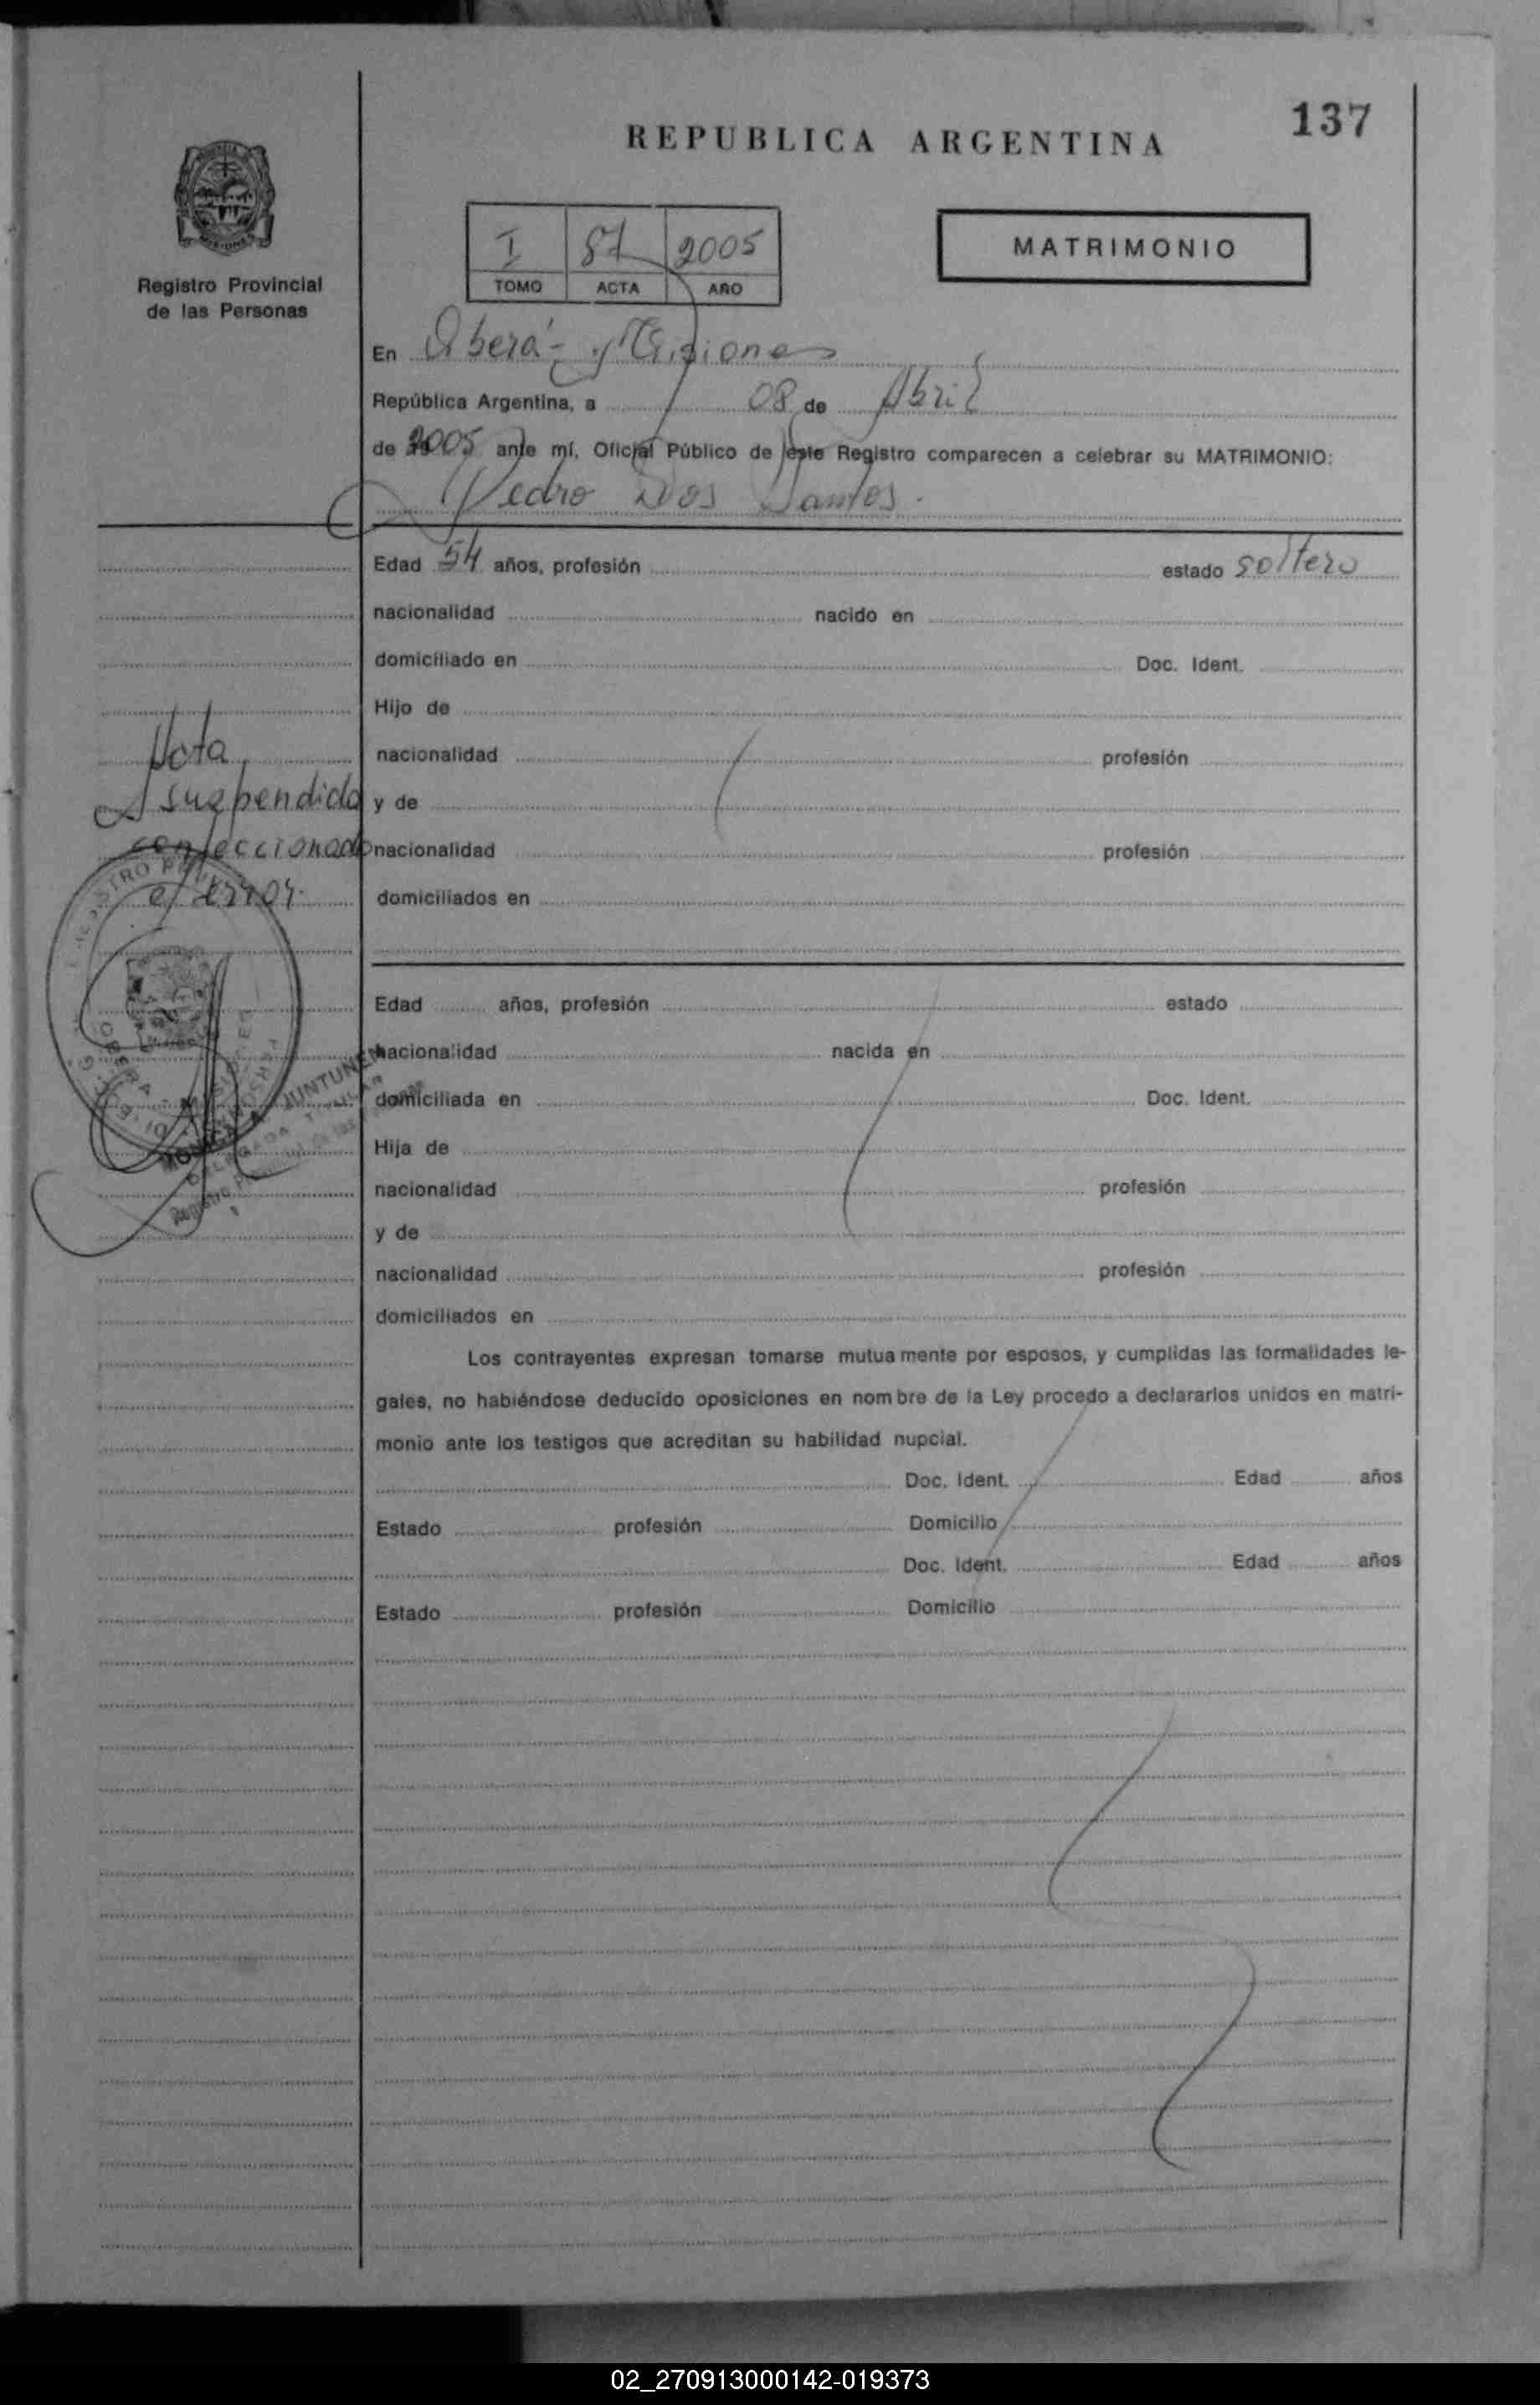 137
REPUBLICA ARGENTINA
MATRIMONIO
I 87 2005
TOMO ACTA AÑO
Registro Provincial
de las Personas
En Oberá - Misiones
República Argentina, a 08 de Abril
de 2005 ante mí, Oficial Público de este Registro comparecen a celebrar su MATRIMONIO:
Pedro Dos Santos.
Edad 54 años, profesión estado soltero
nacionalidad nacido en
domiciliado en Doc. Ident.
Hijo de
nacionalidad profesión
y de
nacionalidad profesión
domiciliados en
Nota
suspendida
confeccionado
error.
Edad años, profesión estado
nacionalidad nacida en
domiciliada en Doc. Ident.
Hija de
nacionalidad profesión
y de
nacionalidad profesión
domiciliados en
Los contrayentes expresan tomarse mutuamente por esposos, y cumplidas las formalidades le-
gales, no habiéndose deducido oposiciones en nombre de la Ley procedo a declararlos unidos en matri-
monio ante los testigos que acreditan su habilidad nupcial.
Doc. Ident. Edad años
Estado profesión Domicilio
Doc. Ident. Edad años
Estado profesión Domicilio
02_270913000142-019373